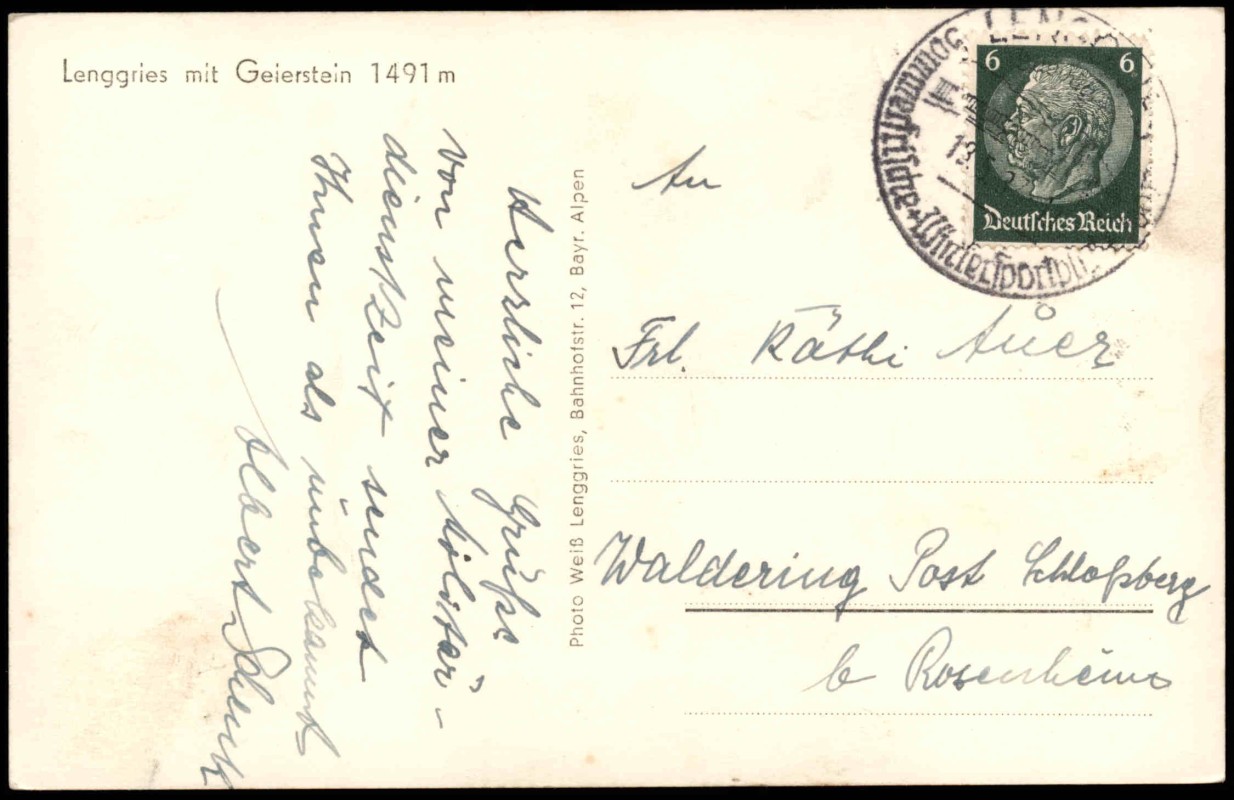 Lenggries mit Geierstein 1491 m
Herzliche Grüße
von meiner Militär-
dienstzeit sendet
Ihnen als unbekannt
Albert Schenk
Photo Weiß Lenggries, Bahnhofstr. 12, Bayr. Alpen
LENG
Sommerfrische + Wintersportpl
13.
6 6
Deutsches Reich
An
Frl. Käthi Auer
Waldering Post Schloßberg
b Rosenheim